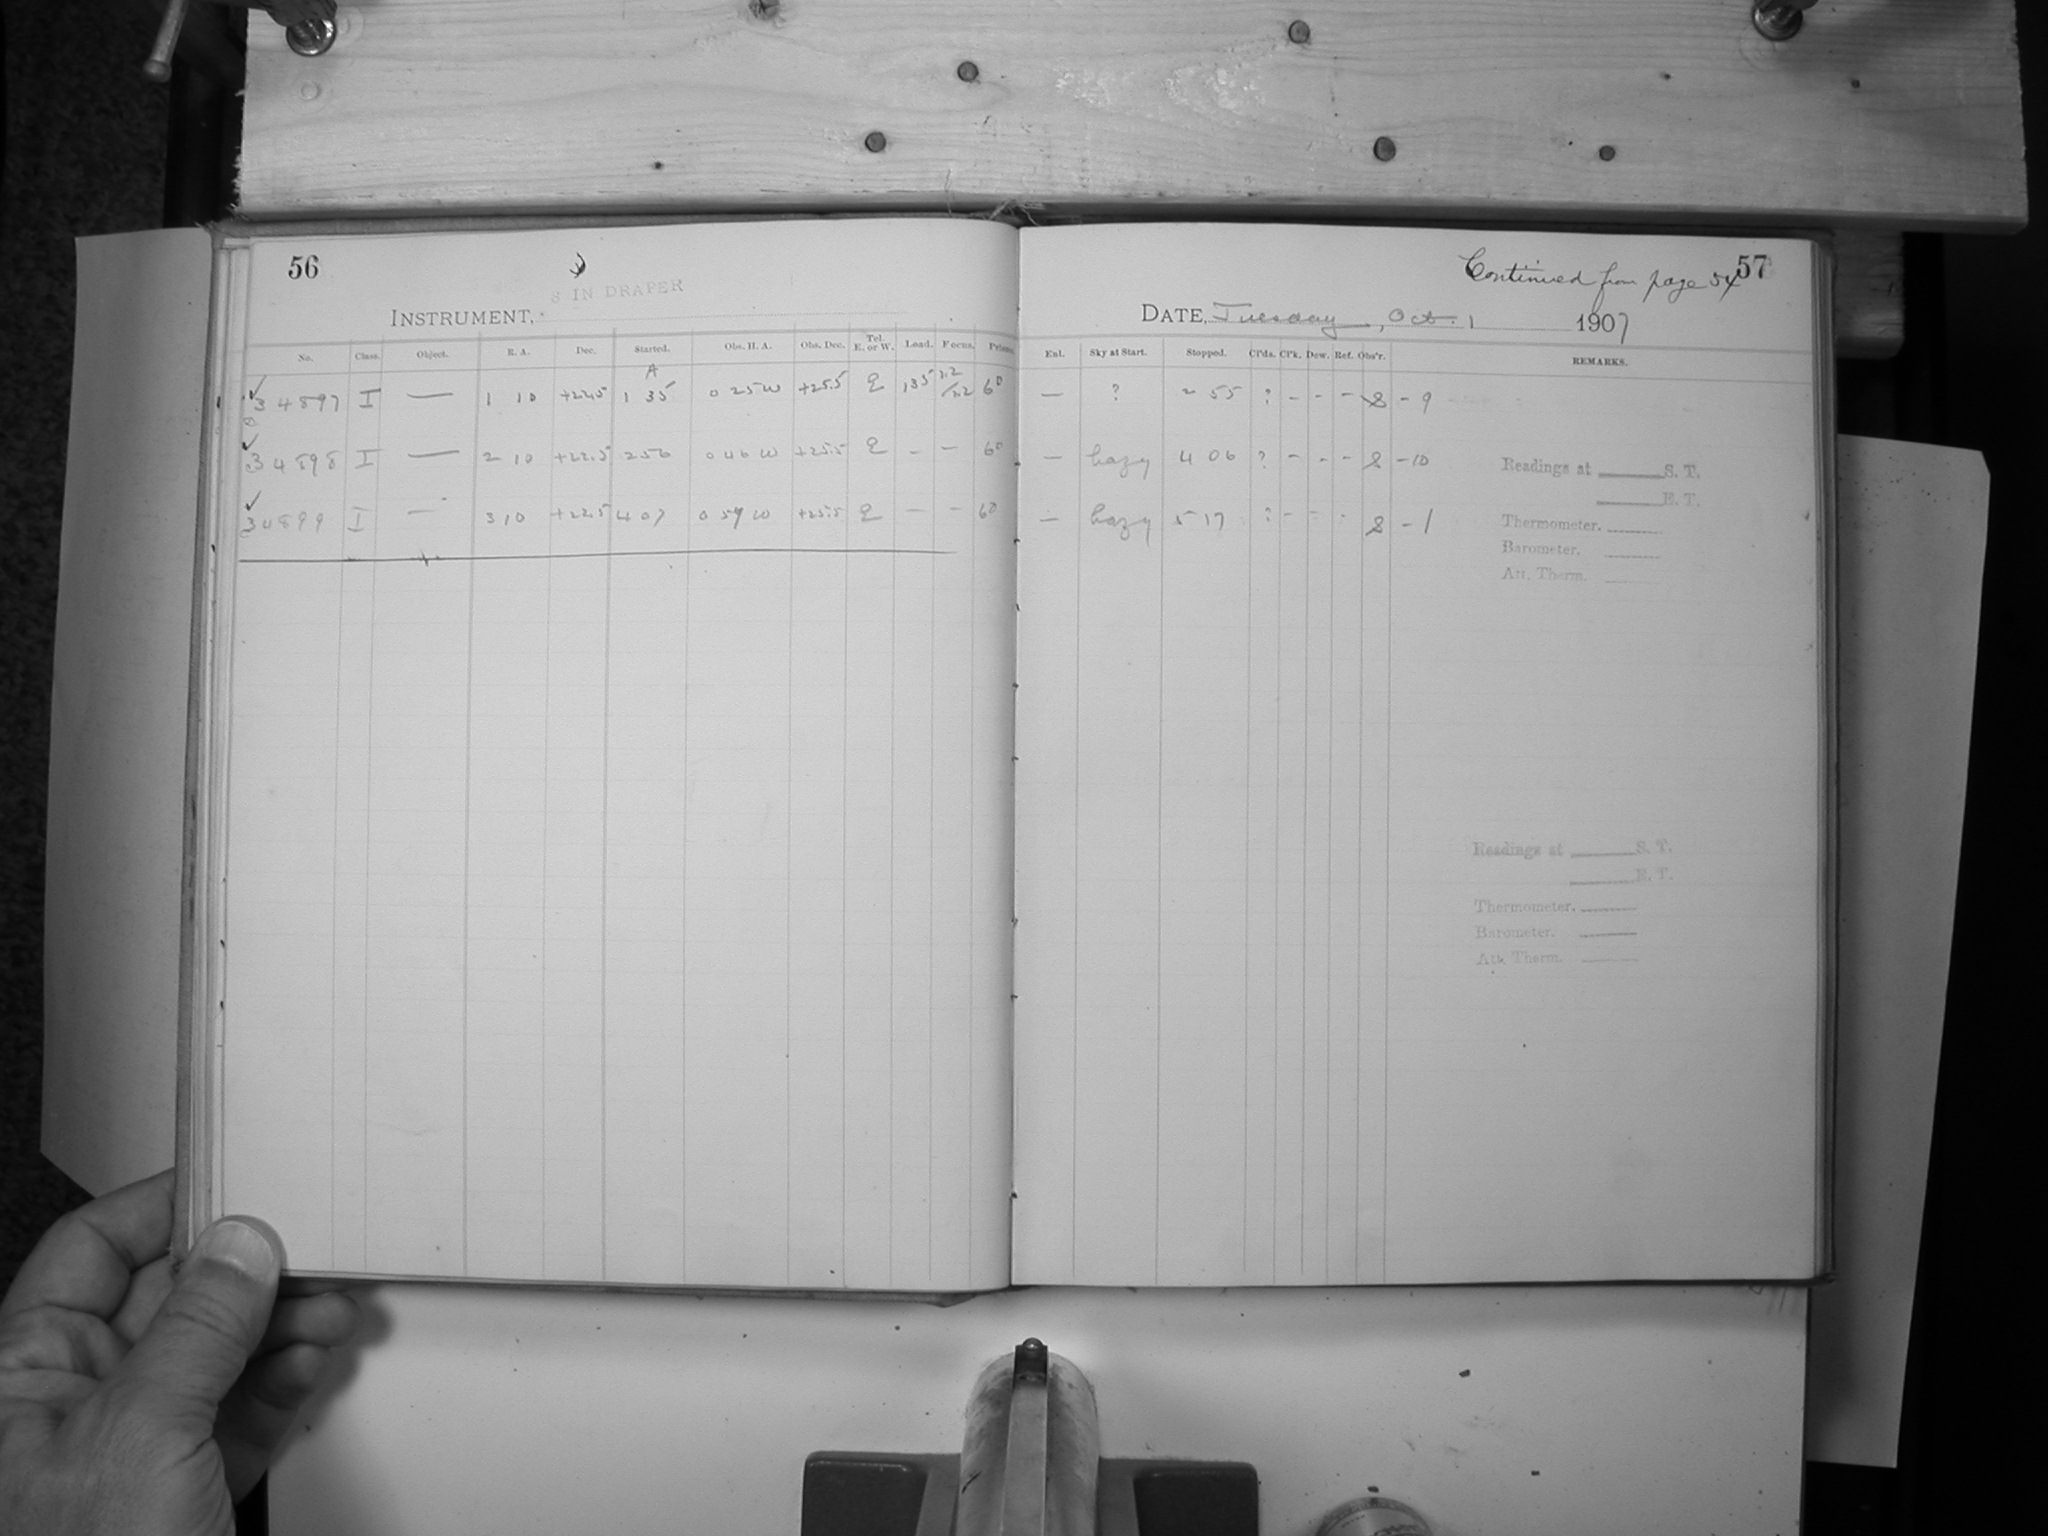 56
8 IN DRAPER
INSTRUMENT,
No. Class. Object. R. A. Dec. Started. Obs. H. A. Obs. Dec. Tel. E. or W. Load. Focus. Prisms.
A
34897 I — 1 10 +22.5 1 35 0 25 W +25.5 E 135 60
34898 I — 2 10 +22.5 2 56 0 46 W +25.5 E - - 60
34899 I — 3 10 +22.5 4 07 0 57 W +25.5 E - - 60
Continued from page 54
57
DATE, Tuesday, Oct. 1 1907
Enl. Sky at Start. Stopped. Cl'ds. Cl'k. Dew. Ref. Obs'r. REMARKS.
— ? 2 55 ? - - - S - 9
— hazy 4 06 ? - - - S - 10
— hazy 5 17 : - - - S - 1
Readings at S. T.
E. T.
Thermometer.
Barometer.
Att. Therm.
Readings at S. T.
E. T.
Thermometer.
Barometer.
Att. Therm.